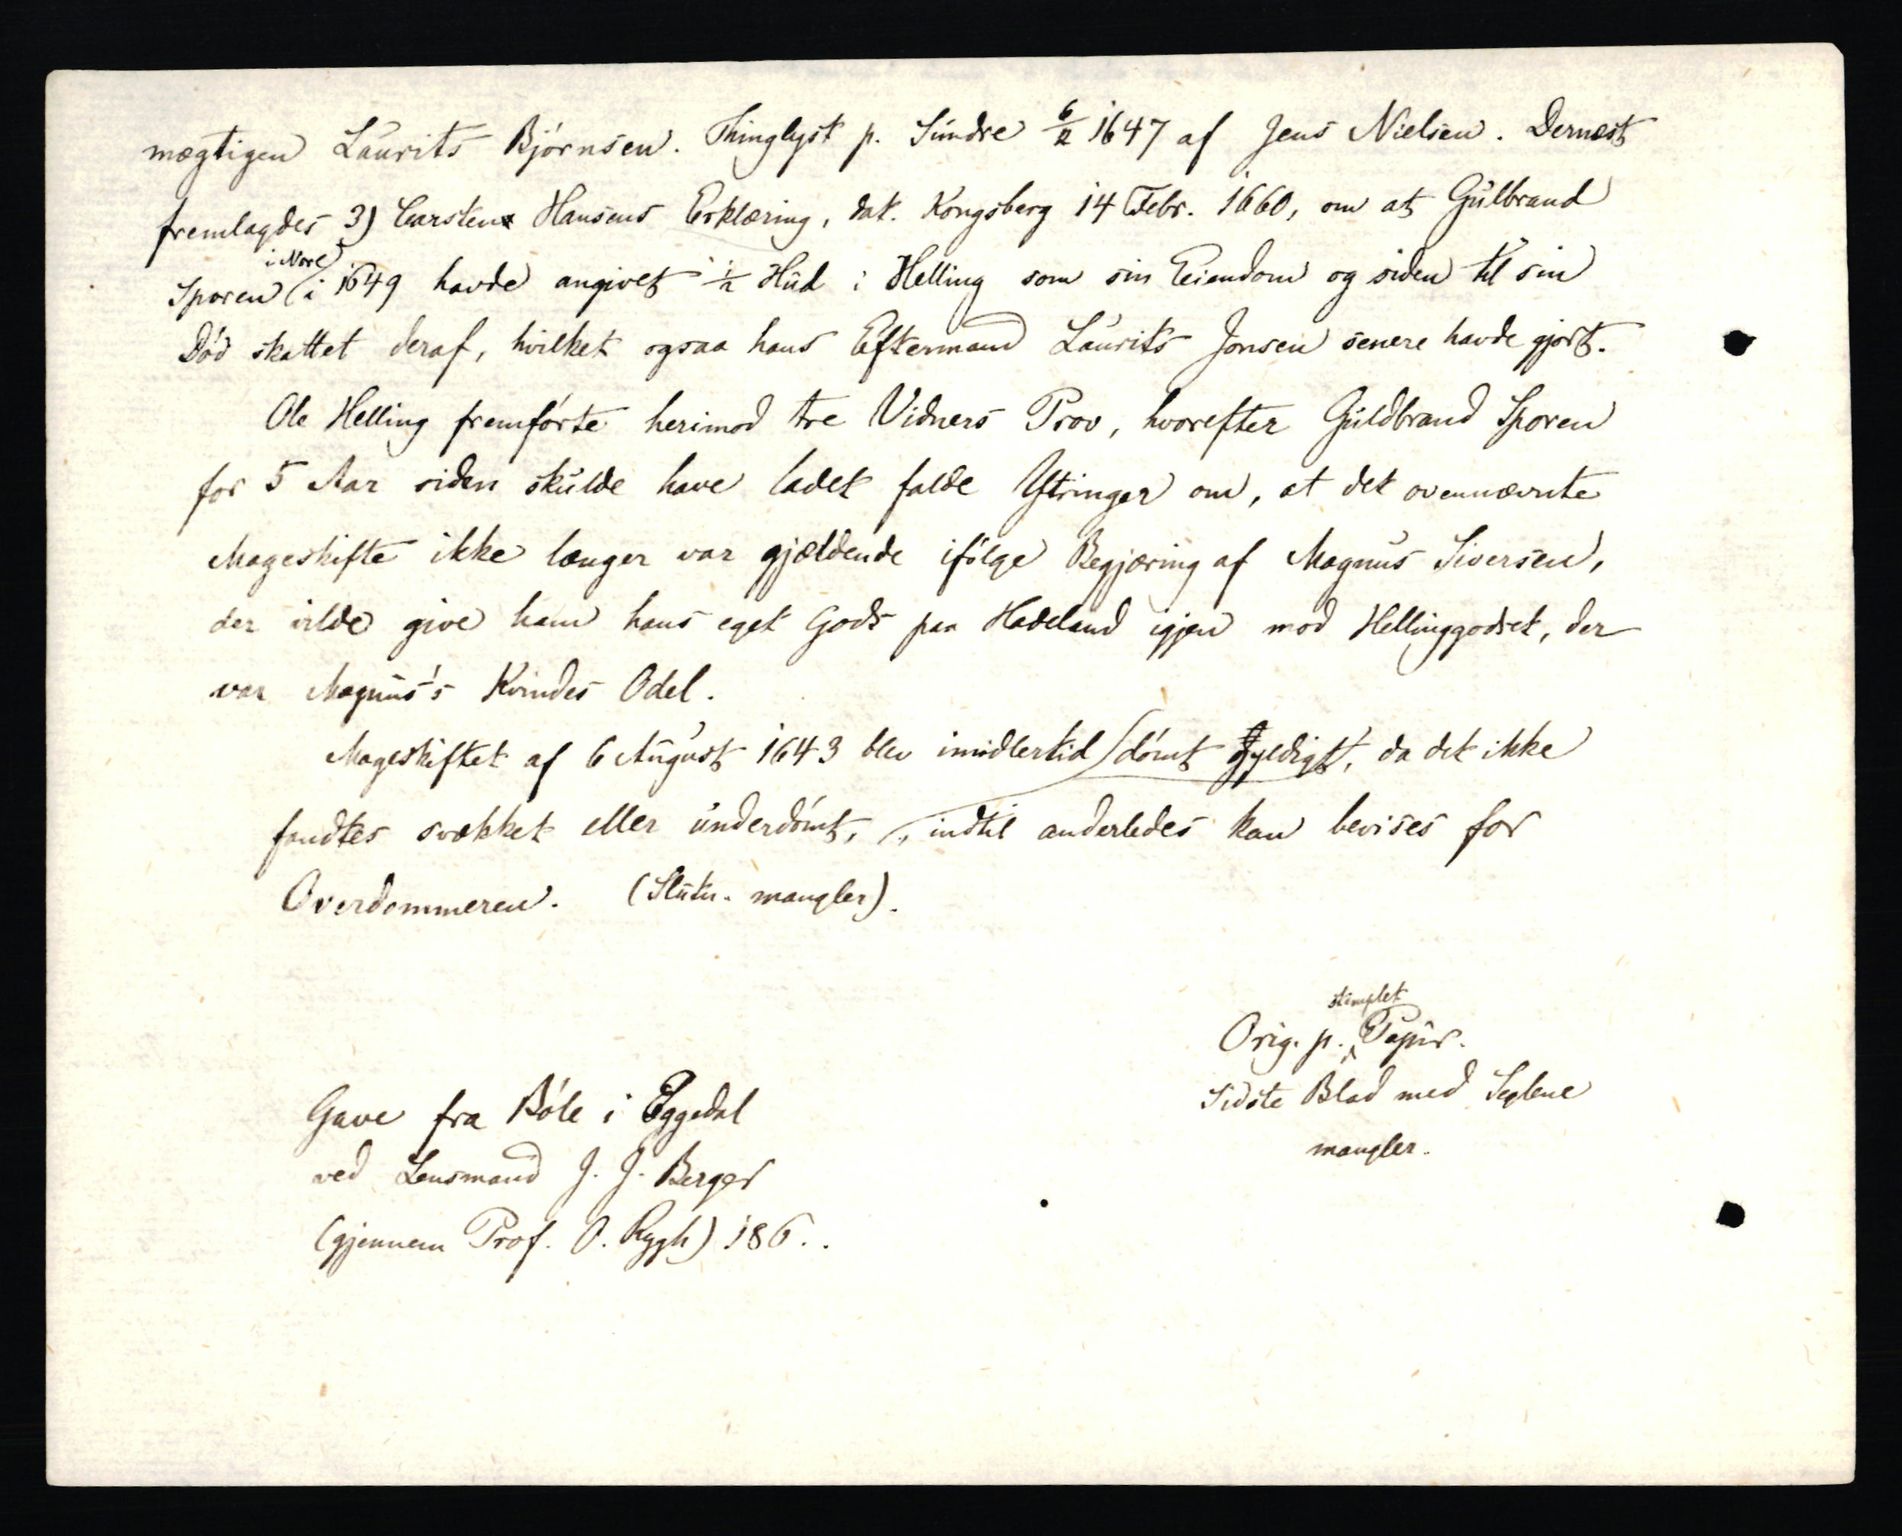 mægtigen Laurits Bjørnsen. Thinglyst p. Sundre 6/12 1647 af Jens Nielsen. Dernæst
fremlagdes 3) Carsten Hansens Erklæring, dat. Kongsberg 14 Febr. 1660, om at Gulbrand
Sporen i Nore i 1649 havde angivet 1/2 Hud i Helling som sin Eiendom og siden til sin
Død skattet deraf, hvilket ogsaa hans Eftermand Laurits Jonsen senere havde gjort.
Ole Helling fremførte herimod tre Vidners Prov, hvorefter Guldbrand Sporen
for 5 Aar siden skulde have ladet falde Ytringer om, at det ovennævnte
Mageskifte ikke længer var gjældende ifølge Begjæring af Magnus Siversen,
der vilde give ham hans eget Gods paa Hadeland igjen mod Hellinggodset, der
var Magnus's Kvindes Odel.
Mageskiftet af 6 August 1643 blev imidlertid dømt gyldigt, da det ikke
fandtes svækket eller underdømt, indtil anderledes kan bevises for
Overdommeren. (Slutn. mangler).
Orig. p. stemplet Papir.
Sidste Blad med Seglene
mangler.
Gave fra Bøle i Eggedal
ved Lensmand J. J. Berger
(gjennem Prof. O. Rygh) 186..